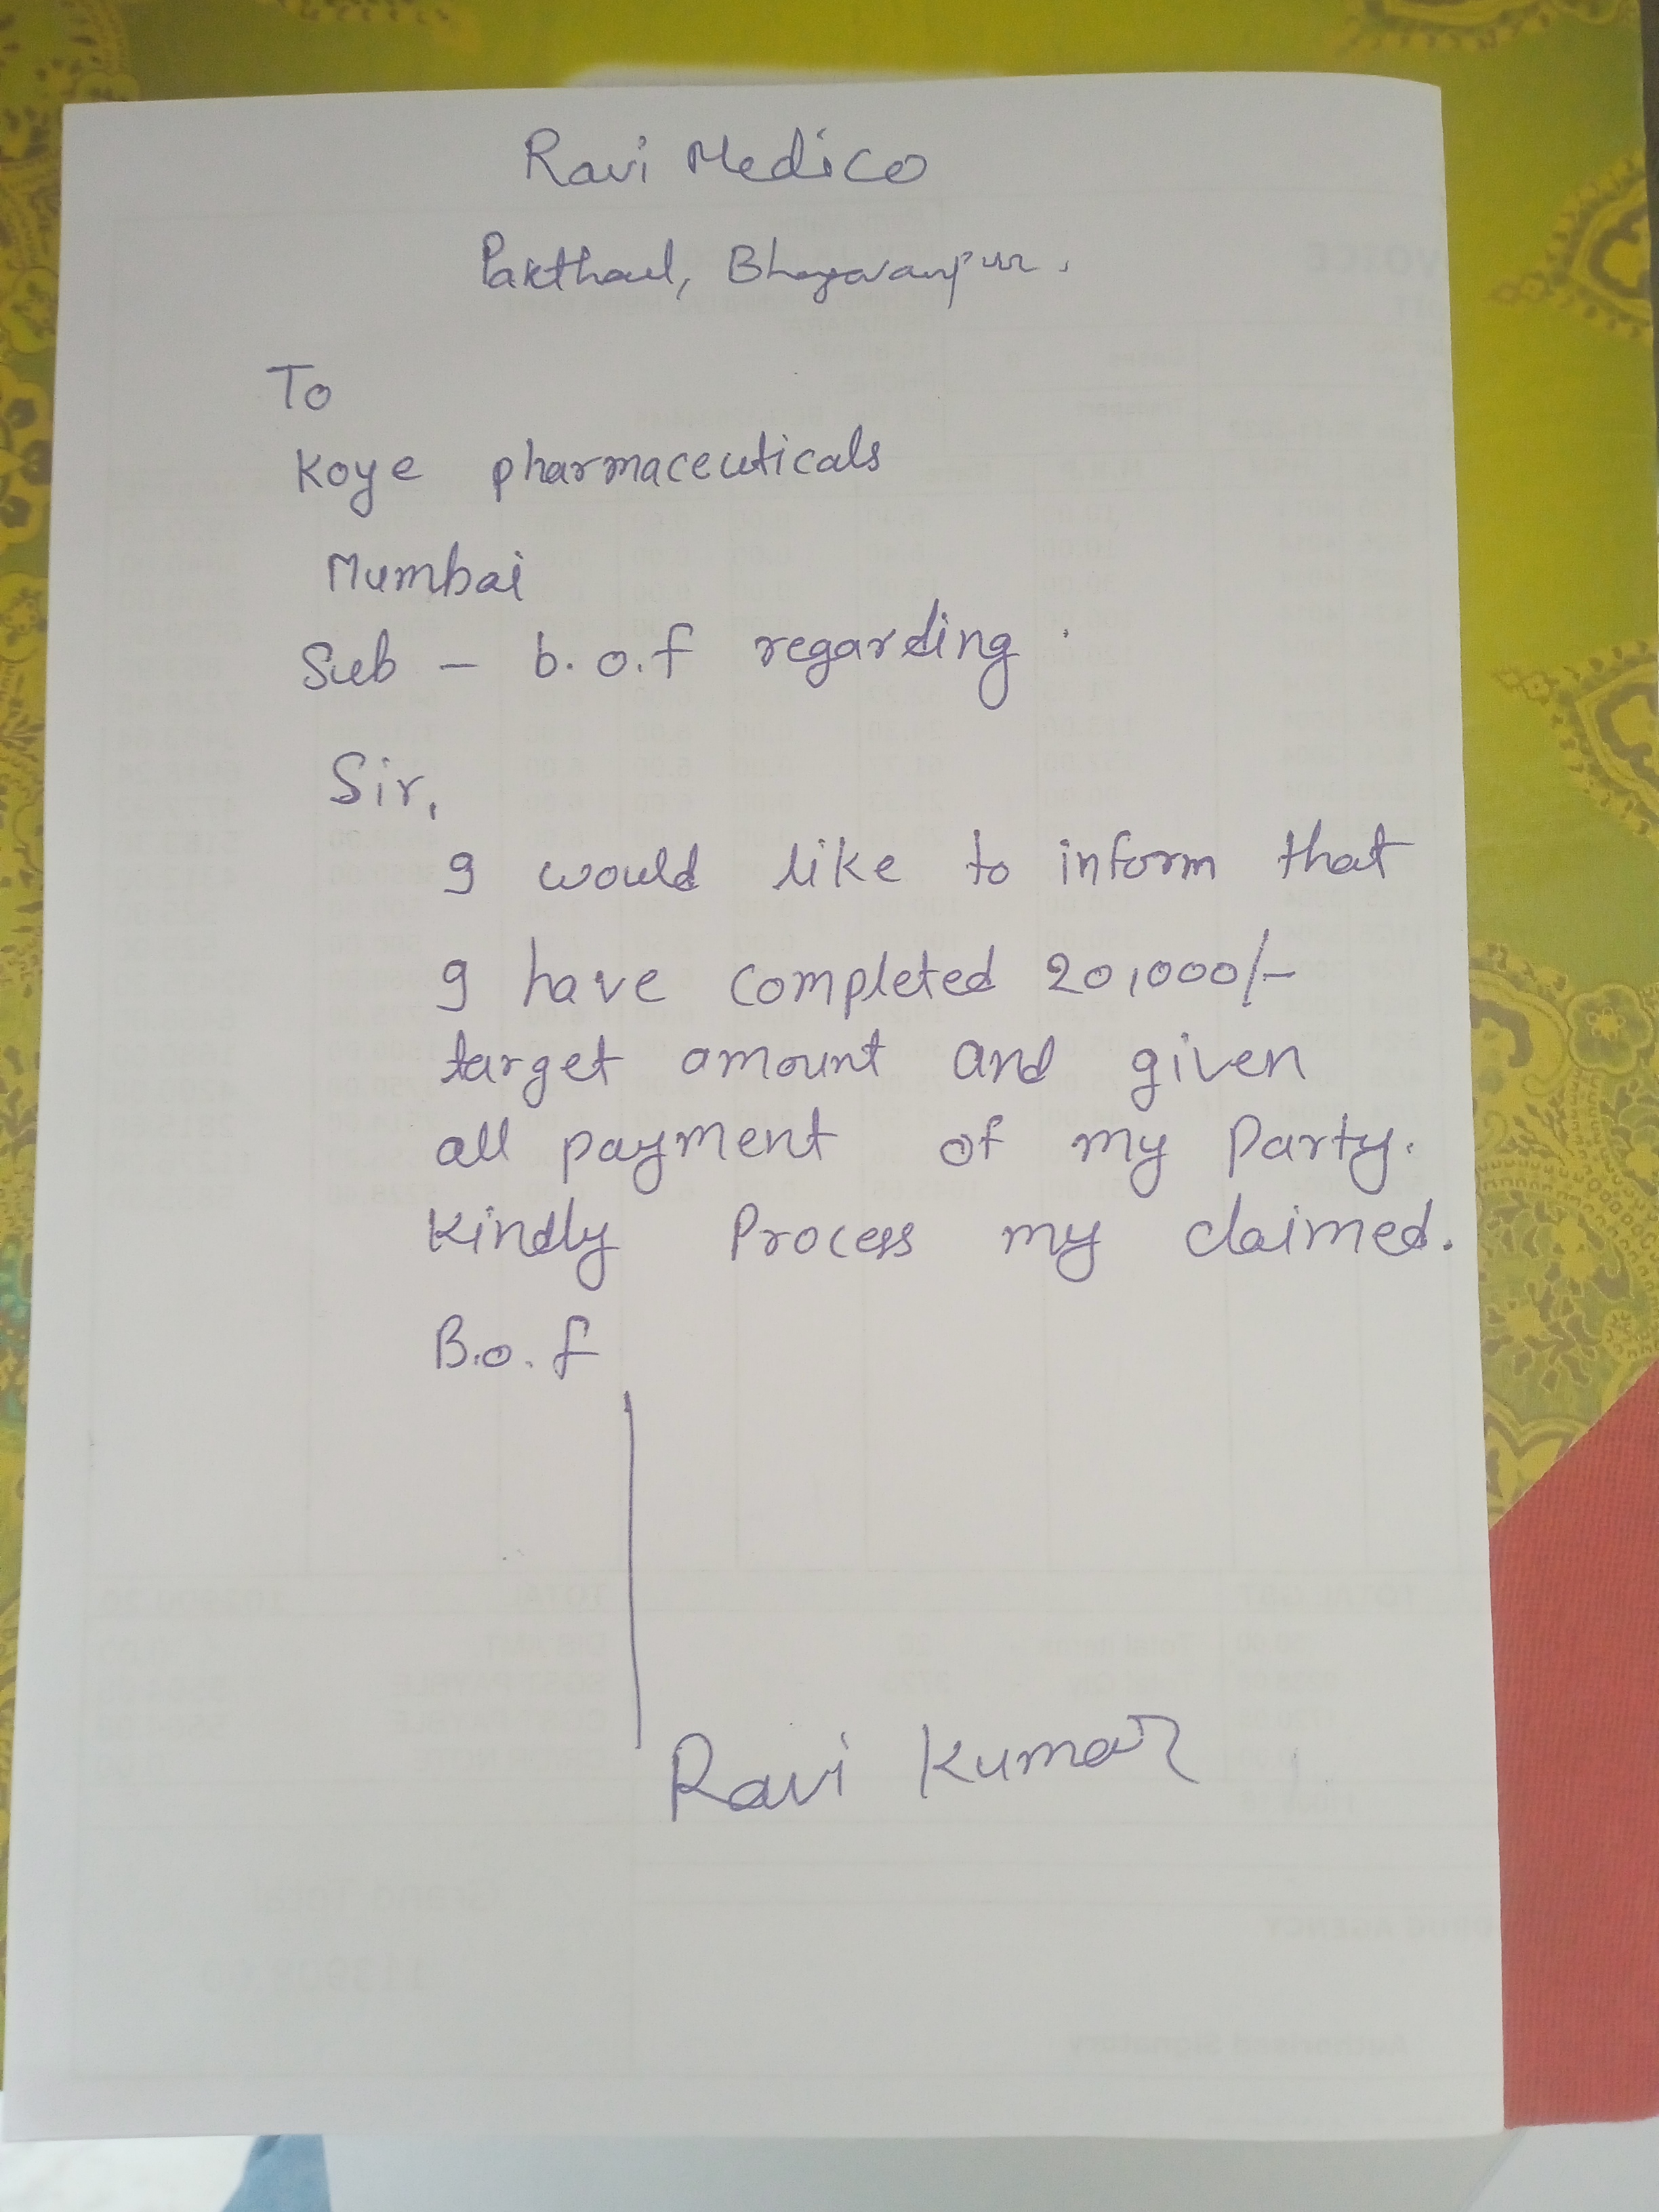 Ravi Medico
Pakthoul, Bhagwanpur.
To
Koye pharmaceuticals
Mumbai
Sub - b.o.f regarding
Sir,
I would like to inform that
I have completed 20,000/-
target amount and given
all payment of my Party.
Kindly Process my claimed.
B.o.f
Ravi Kumar